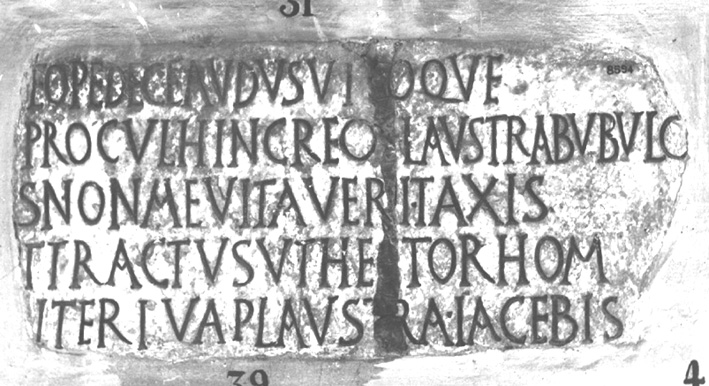 31
8894
LOPEDECLAVDVSVT OQVE
PROCVLHINCREC LAVSTRABVBVLC
SNONMEVITAVERITAXIS
TTRACTVSVTHE TORHOM
ITERIVAPLAVSTRA·IACEBIS
39
4